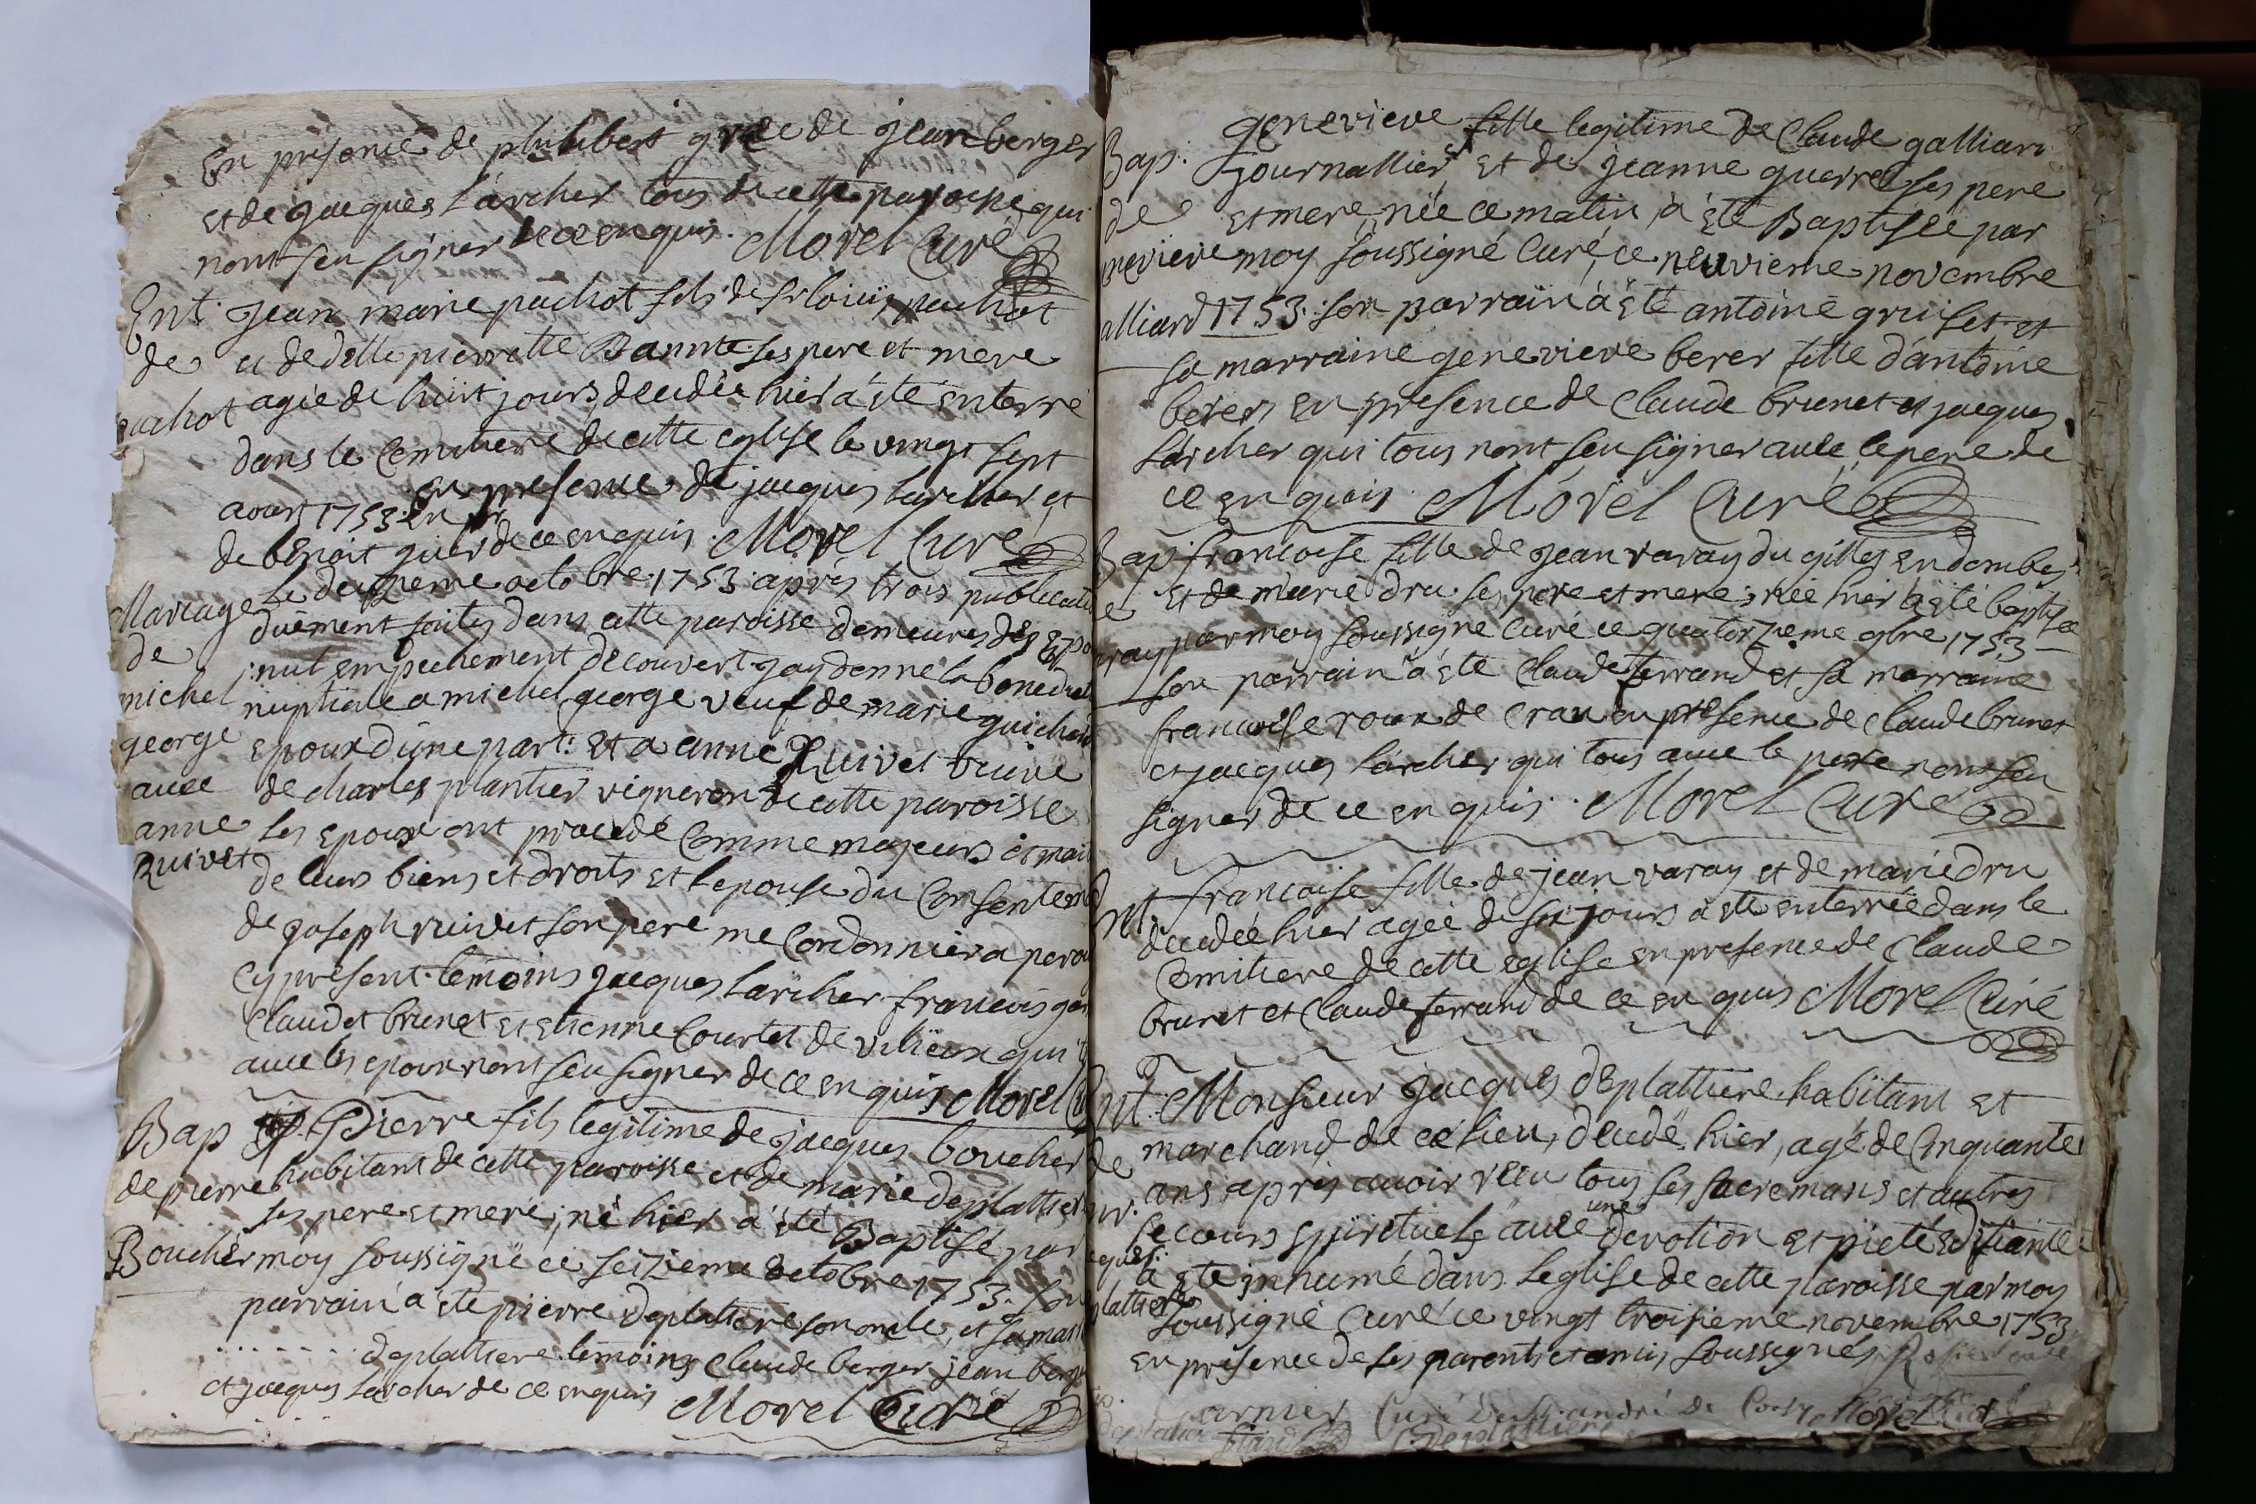 En presence de philibert grée de jean berger
et de jacques Larcher tous de cette paroisse qui
nont seu signer de ce enquis. Morel Curé
Ent. Jean marie pachot fils de sr loüis pachot
de et de dlle pierrette Bannte ses pere et mere
pachot agée de huit jours, decedée hier a été enterré
dans le Cemitiere de cette eglise le vingt sept
aoust 1753. en presence de jacques Larcher et
de benoit de ce enquis. Morel Curé
Mariage Le deuxieme octobre 1753 aprés trois publicati
duëment faites dans cette paroisse demeures des
de nul empechement decouvert jay donné la benedict
michel nuptiale a michel george veuf de marie guichard
george epoux d'une part: Et a anne Ruivet veuve
avec de charles plantier vigneron de cette paroisse
anne les epoux ont procedé Comme majeurs et mai
Ruivet de leurs biens et droits et l'epouse du Consentem
de joseph ruivet son pere me Cordonnier a perou
cy présent. temoins jacques Larcher francois
Claudet brunet et etienne Courtet de vilieux qui
avec les epoux nont seu signer de ce enquis Morel
Bap Pierre fils legitime de jacques boucher
de pierre habitant de cette paroisse et de marie deplattier
ses pere et mere, né hier a été Baptisé par
Bouchér moy soussigné ce seizieme octobre 1753. Son
parrain a été pierre deplattiere son oncle, et sa marr
........ deplattiere. temoins Claude berger jean berg
et jacques Larcher de ce enquis Morel Curé
genevieve fille legitime de Claude galliard
Bap. journallier et de jeanne guerre ses pere
de et mere, née ce matin, a été Baptisée par
enevieve moy soussigné Curé, ce neuvieme novembre
alliard 1753. son parrain a été antoine gruiset et
sa marraine genevieve berer fille d'antoine
berer, en presence de Claude brunet et jacques
Larcher qui tous nont seu signer avec le pere de
ce enquis Morel Curé
Bap. francoise fille de jean varay du gilles en dombes
e et de marie dru ses pere et mere, née hier a été baptisée
aray par moy soussigné Curé ce quatorzieme 9bre 1753
son parrain a été Claude ferrand et sa marraine
francoise roux de Cran en presence de Claude brunet
et jacques Larcher qui tous avec le pere nont seu
signer de ce enquis. Morel Curé
Ent. francoise fille de jean varay et de marie dru
decedée hier agée de six jours a été enterrée dans le
Cemitiere de cette eglise en presence de Claude
brunet et Claude ferrand de ce enquis Morel Curé
Ent. Monsieur jacques deplattiere habitant et
de marchand de ce lieu, decedé hier, agé de Cinquante
ans, aprés avoir reeu tous ses sacremans et autres
secours spirituels avec une devotion et pieté edifiante
acques a été inhumé dans l'eglise de cette paroisse par moy
plattiere soussigné Curé ce vingt troisieme novembre 1753
en presence de ses parents et amis soussignés
Curé de St. andré de Corsy Morel Curé
Deplattiere